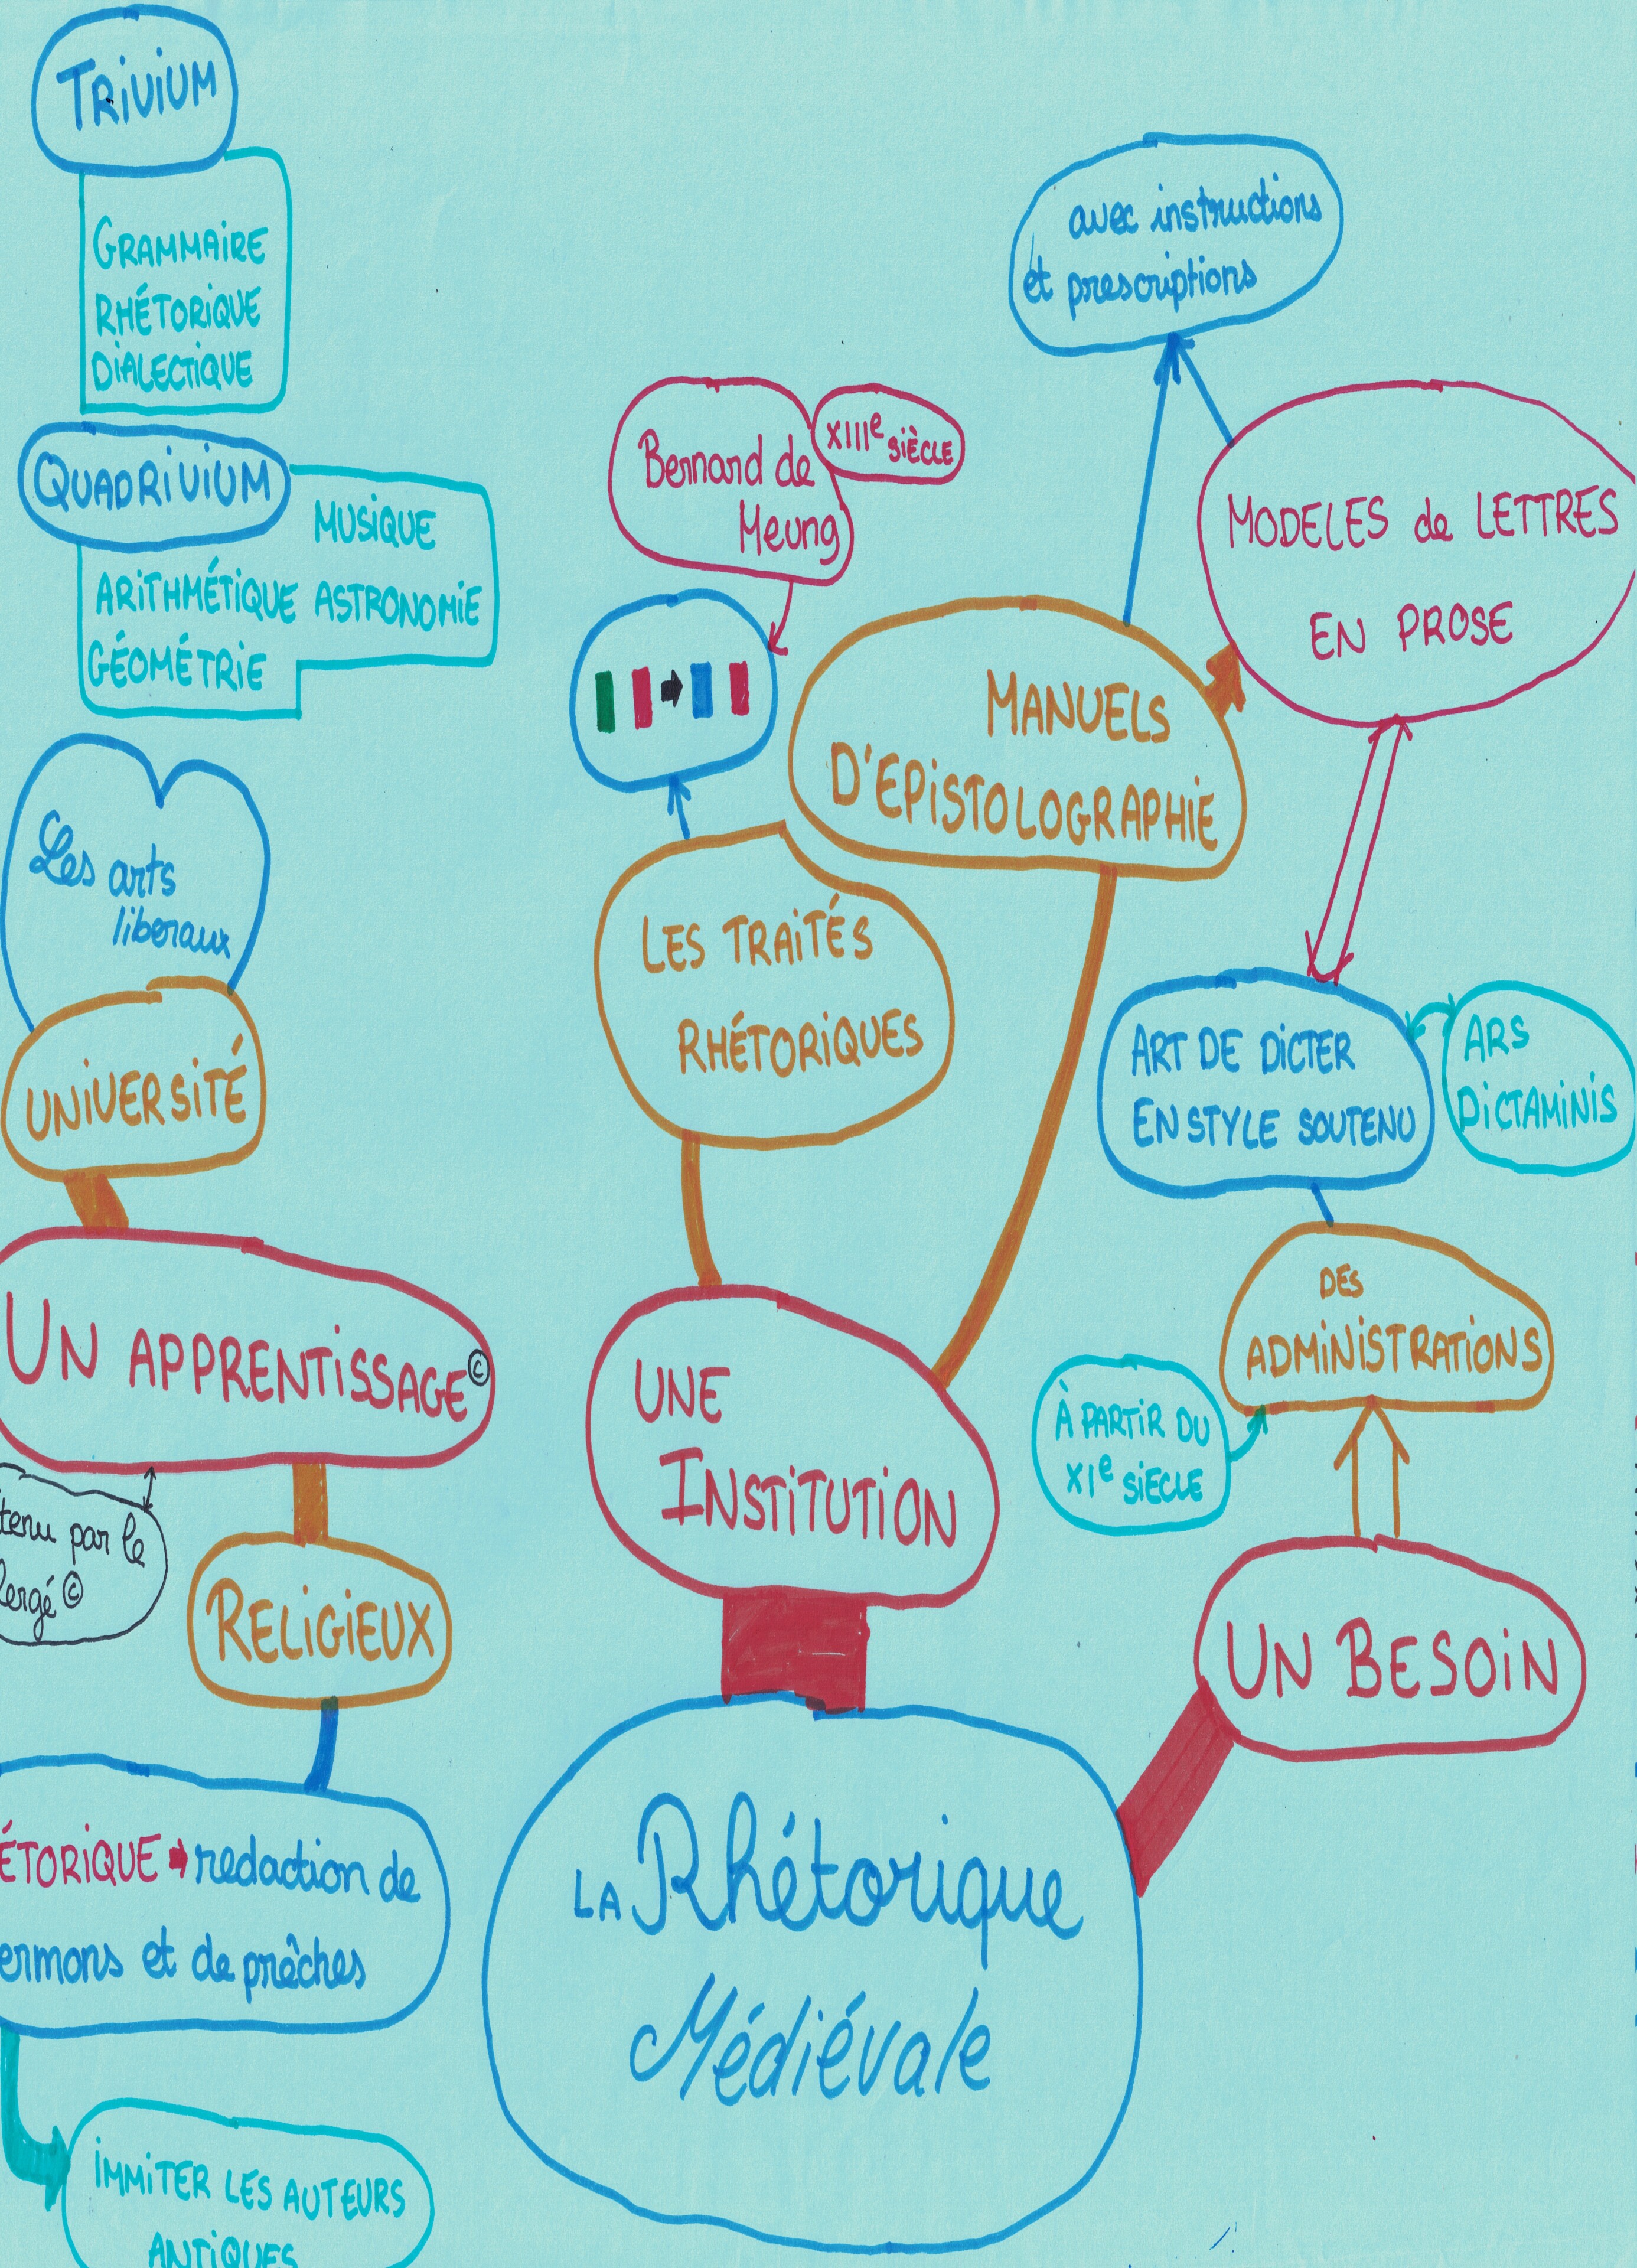 TRIVIUM
GRAMMAIRE
RHÉTORIQUE
DIALECTIQUE
QUADRIVIUM
MUSIQUE
ARITHMÉTIQUE ASTRONOMIE
GÉOMÉTRIE
Les arts
liberaux
UNIVERSITÉ
UN APPRENTISSAGE ©
tenu par le
lergé ©
RELIGIEUX
ÉTORIQUE → redaction de
ermons et de prêches
IMMITER LES AUTEURS
ANTIQUES
Bernard de
Meung
XIIIe SIÈCLE
LES TRAITÉS
RHÉTORIQUES
MANUELS
D'EPISTOLOGRAPHIE
UNE
INSTITUTION
LA Rhétorique
Médiévale
avec instructions
et prescriptions
MODELES de LETTRES
EN PROSE
ART DE DICTER
EN STYLE SOUTENU
ARS
DICTAMINIS
DES
ADMINISTRATIONS
À PARTIR DU
XIe SIECLE
UN BESOIN